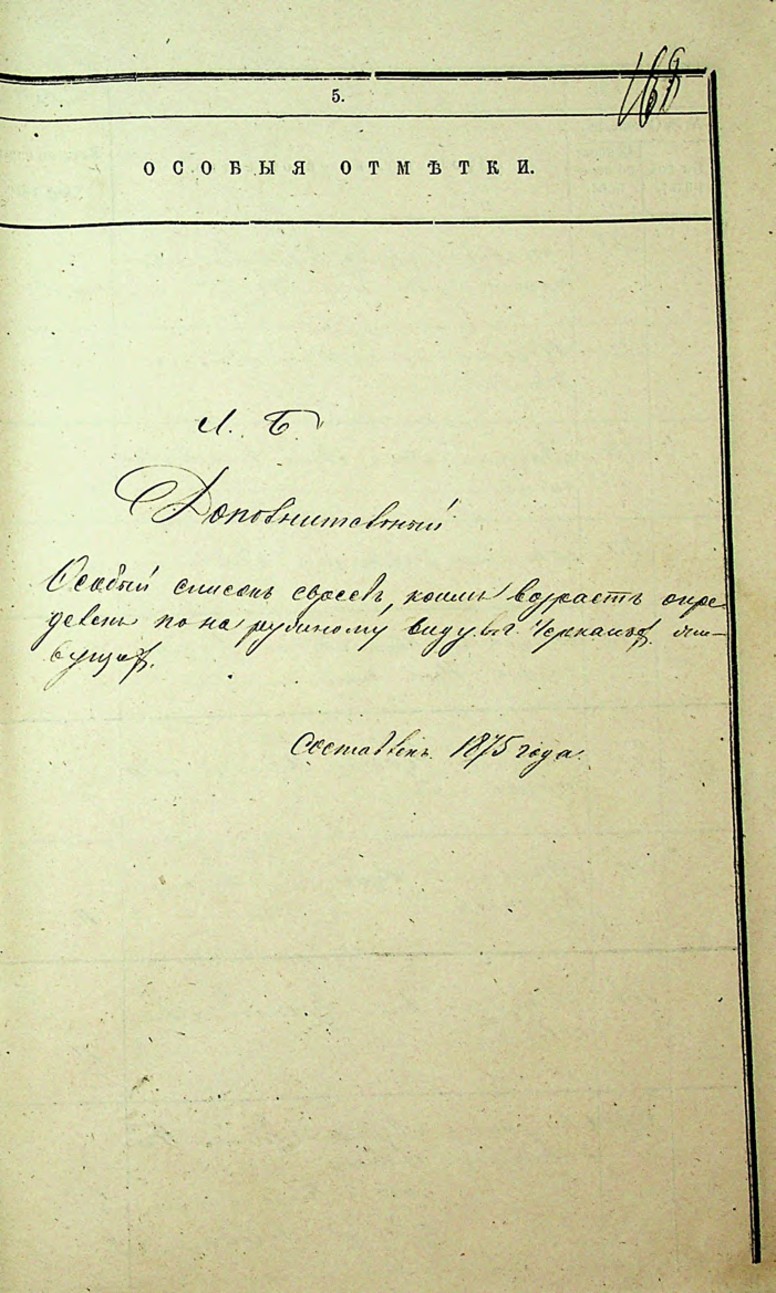 168
5.
ОСОБЫЯ ОТМѢТКИ.
Л. Б.
Дополнительный
Особый списокъ евреевъ, коимъ возрастъ опре-
деленъ по наружному виду въ г. Черкасахъ жи-
вущихъ.
Составленъ 1875 года.